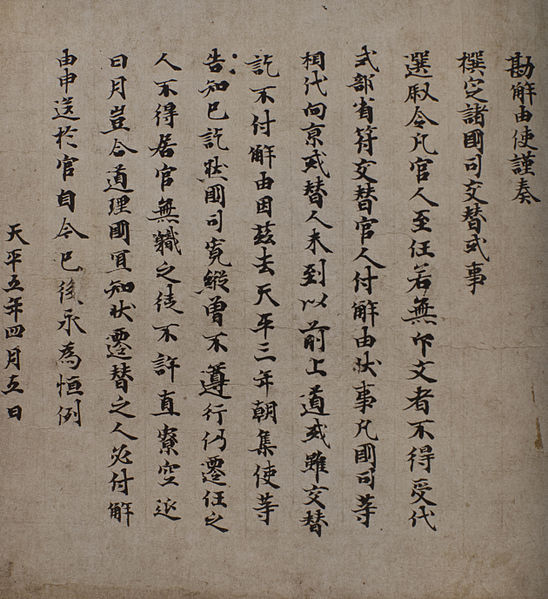 勘解由使謹奏
撰定諸國司交替式事
選叙令凡官人至任若無印文者不得受代
式部省符交替官人付解由状事凡國司等
相代向京或替人未到以前上道或雖交替
訖不付解由因茲去天平三年朝集使等
告知已訖然國司寛縦曽不遵行仍遷任之
人不得居官無軄之徒不許直寮空延
日月豈合道理國冝知状遷替之人必付解
由申送於官自今已後永為恒例
天平五年四月五日